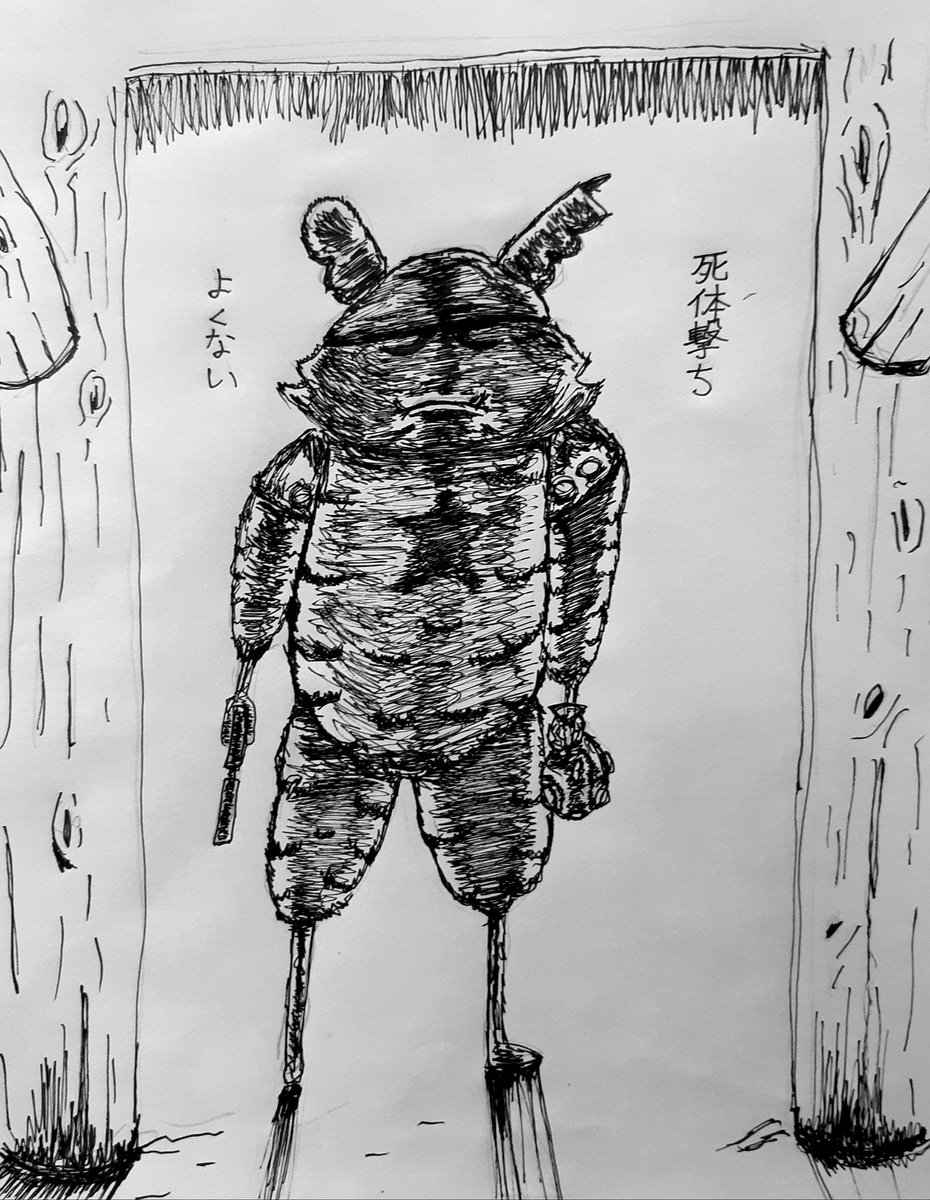 死体撃ち
よくない